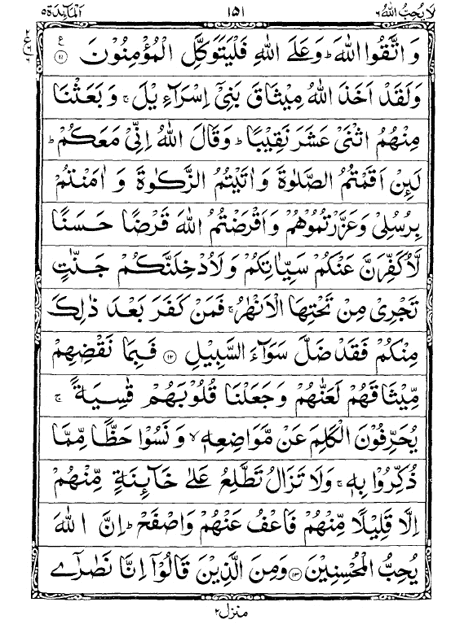 لَا يُحِبُّ اللهُ ٦ ١٥١ اَلْمَآئِدَة ٥
وَ اتَّقُوا اللهَ ؕ وَ عَلَى اللهِ فَلْيَتَوَكَّلِ الْمُؤْمِنُوْنَ ۧ ﴿۱۱﴾
وَ لَقَدْ اَخَذَ اللهُ مِيْثَاقَ بَنِيْۤ اِسْرَآءِيْلَ ۚ وَ بَعَثْنَا
مِنْهُمُ اثْنَيْ عَشَرَ نَقِيْبًا ؕ وَ قَالَ اللهُ اِنِّيْ مَعَكُمْ ؕ
لَئِنْ اَقَمْتُمُ الصَّلٰوةَ وَ اٰتَيْتُمُ الزَّكٰوةَ وَ اٰمَنْتُمْ
بِرُسُلِيْ وَ عَزَّرْتُمُوْهُمْ وَ اَقْرَضْتُمُ اللهَ قَرْضًا حَسَنًا
لَّاُكَفِّرَنَّ عَنْكُمْ سَيِّاٰتِكُمْ وَ لَاُدْخِلَنَّكُمْ جَنّٰتٍ
تَجْرِيْ مِنْ تَحْتِهَا الْاَنْهٰرُ ۚ فَمَنْ كَفَرَ بَعْدَ ذٰلِكَ
مِنْكُمْ فَقَدْ ضَلَّ سَوَآءَ السَّبِيْلِ ﴿۱۲﴾ فَبِمَا نَقْضِهِمْ
مِّيْثَاقَهُمْ لَعَنّٰهُمْ وَ جَعَلْنَا قُلُوْبَهُمْ قٰسِيَةً ۚ
يُحَرِّفُوْنَ الْكَلِمَ عَنْ مَّوَاضِعِهٖ ۙ وَ نَسُوْا حَظًّا مِّمَّا
ذُكِّرُوْا بِهٖ ۚ وَ لَا تَزَالُ تَطَّلِعُ عَلٰى خَآئِنَةٍ مِّنْهُمْ
اِلَّا قَلِيْلًا مِّنْهُمْ فَاعْفُ عَنْهُمْ وَ اصْفَحْ ؕ اِنَّ اللهَ
يُحِبُّ الْمُحْسِنِيْنَ ﴿۱۳﴾ وَ مِنَ الَّذِيْنَ قَالُوْۤا اِنَّا نَصٰرٰۤى
منزل ٢